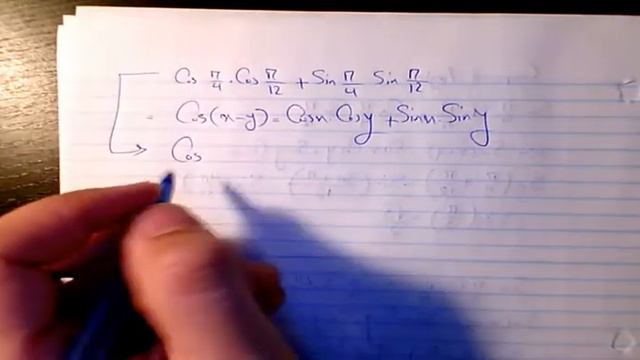 Cos π/4 . Cos π/12 + Sin π/4 Sin π/12
Cos(x-y) = Cosx Cosy + Sinx Siny
Cos